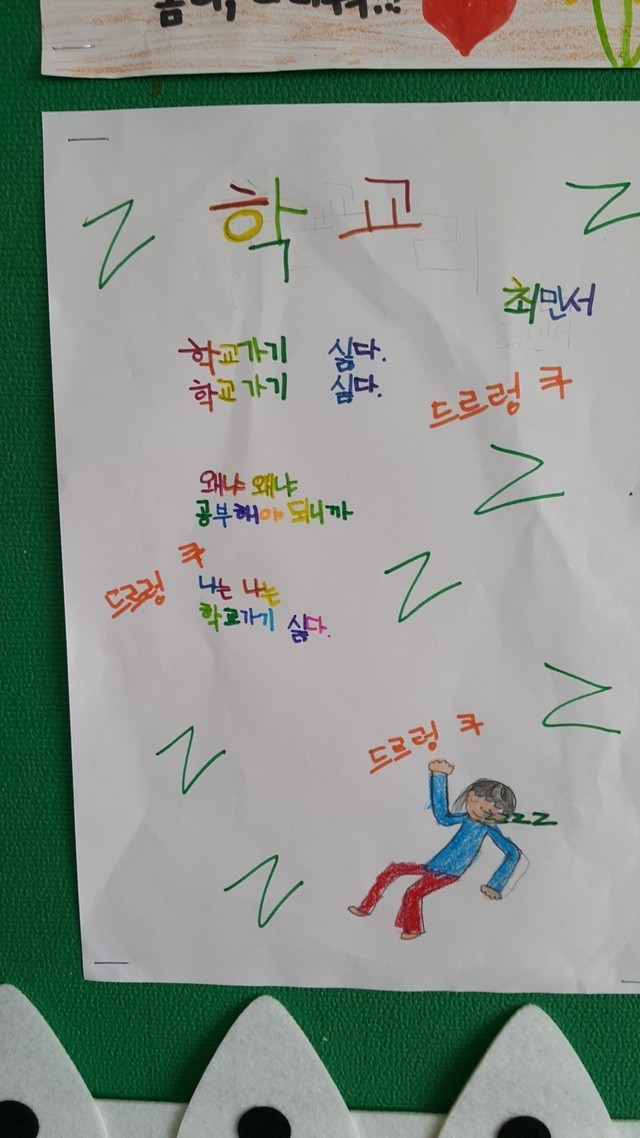 학교
최민서
학교가기 싫다.
학교가기 싫다.
드르렁 쿠
왜냐 왜냐
공부해야 되니까
드르렁 쿠
나는 나는
학교가기 싫다.
드르렁 쿠
zzzz
Z
Z
Z
Z
Z
Z
Z